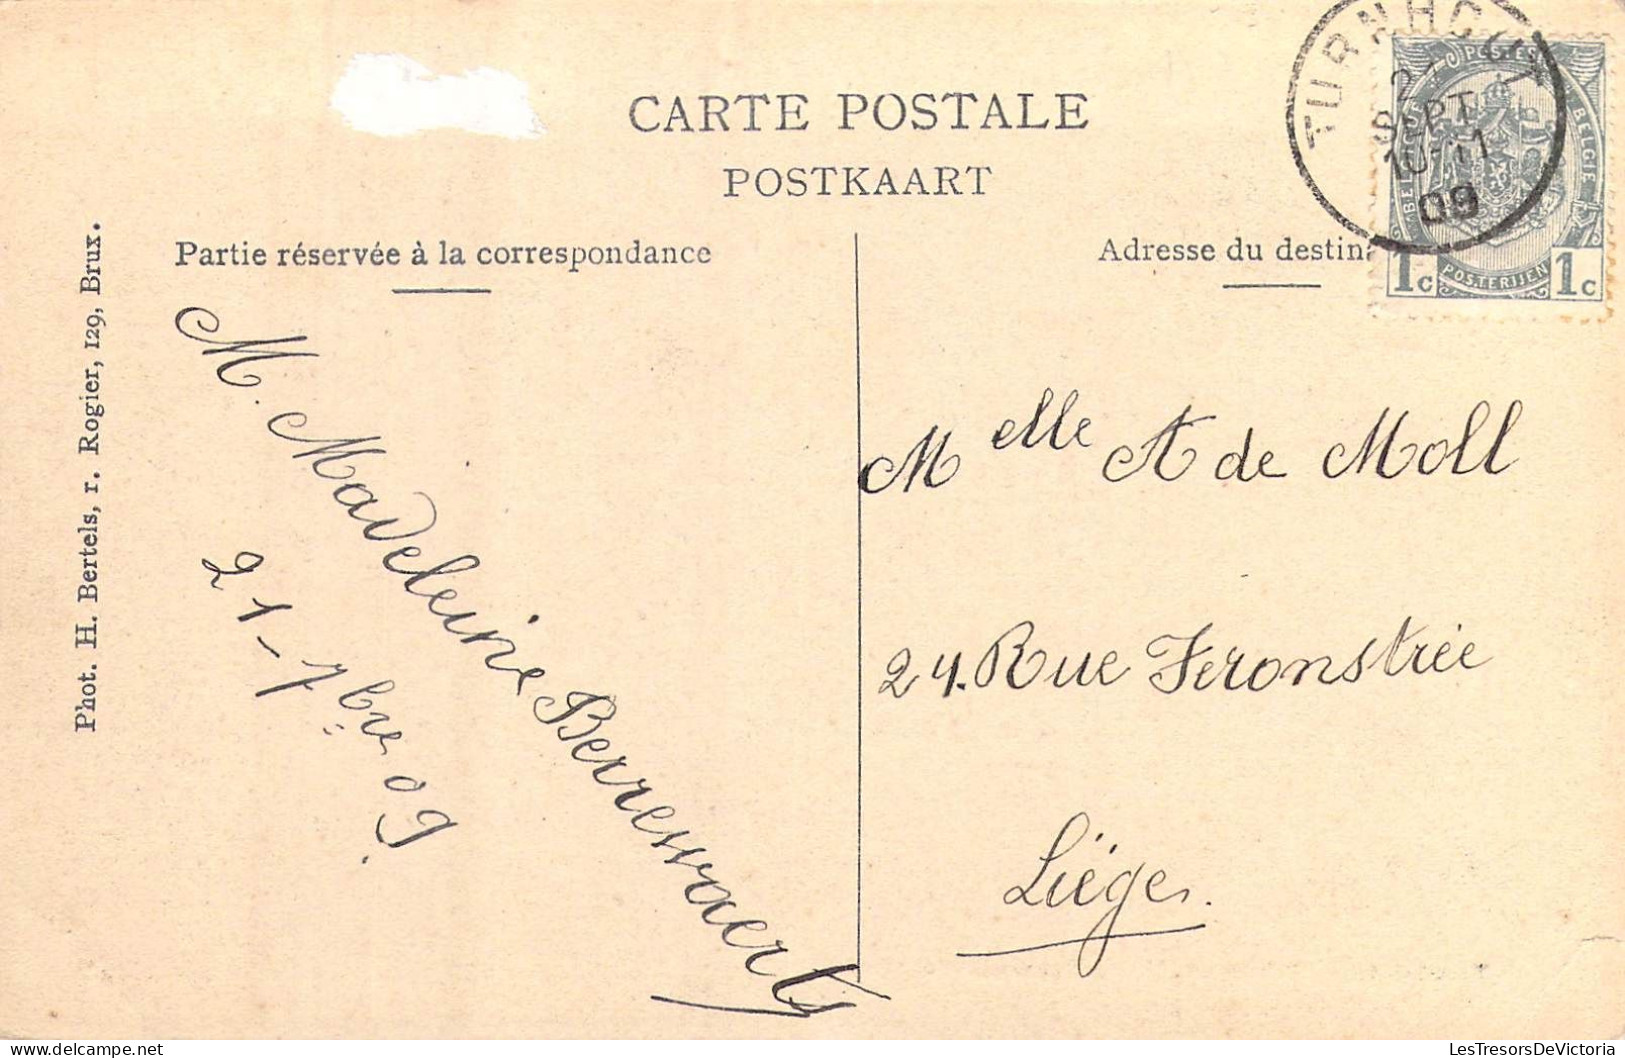 CARTE POSTALE
POSTKAART
Partie réservée à la correspondance
Adresse du destin
TURNHOUT
SEPT
10-11
09
POSTES
BELGIE
POSTERIJEN
1c 1c
Phot. H. Bertels, r. Rogier, 129, Brux.
M. Madeleine Berrewaerts
21-7bre 09.
Melle A de Moll
24. Rue Feronstrée
Liége.
LesTresorsDeVictoria